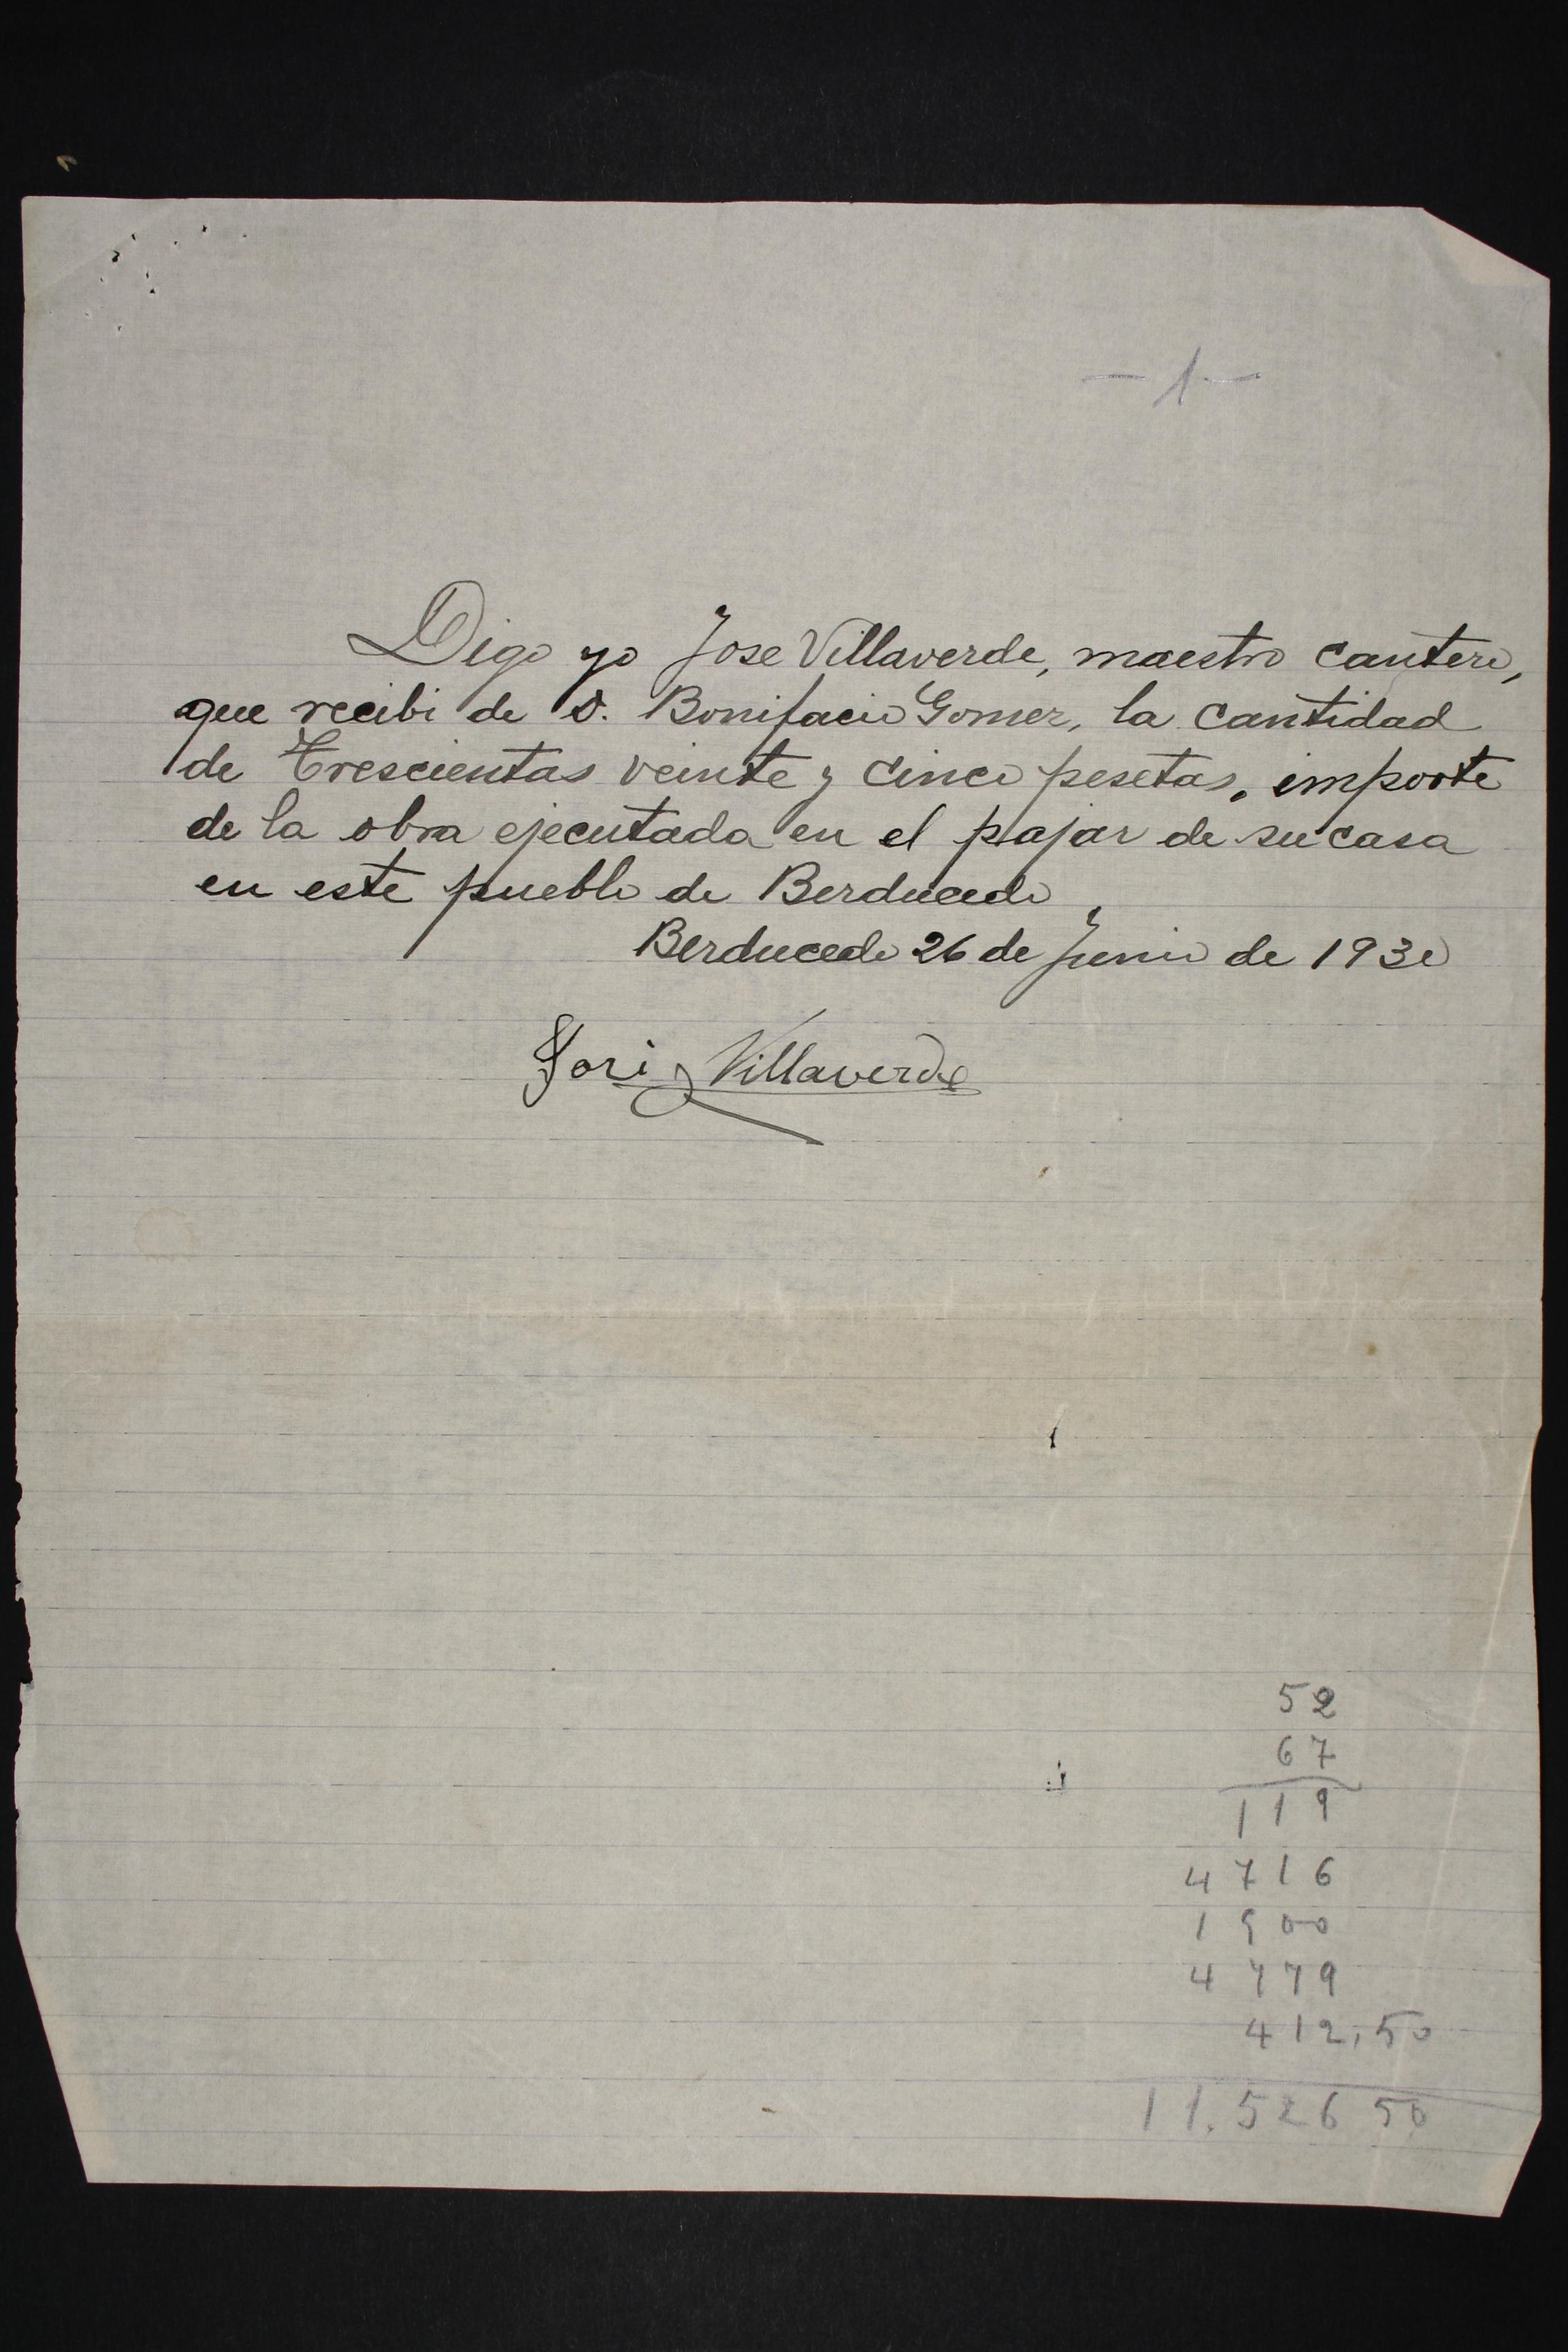 - 1 -
Digo yo Jose Villaverde, maestro cantero,
que recibi de D. Bonifacio Gomez, la cantidad
de Trescientas veinte y cinco pesetas, importe
de la obra ejecutada en el pajar de su casa
en este pueblo de Berducedo
Berducedo 26 de Junio de 1930
Jose Villaverde
52
67
119
4716
1500
4779
412,50
11.526 50